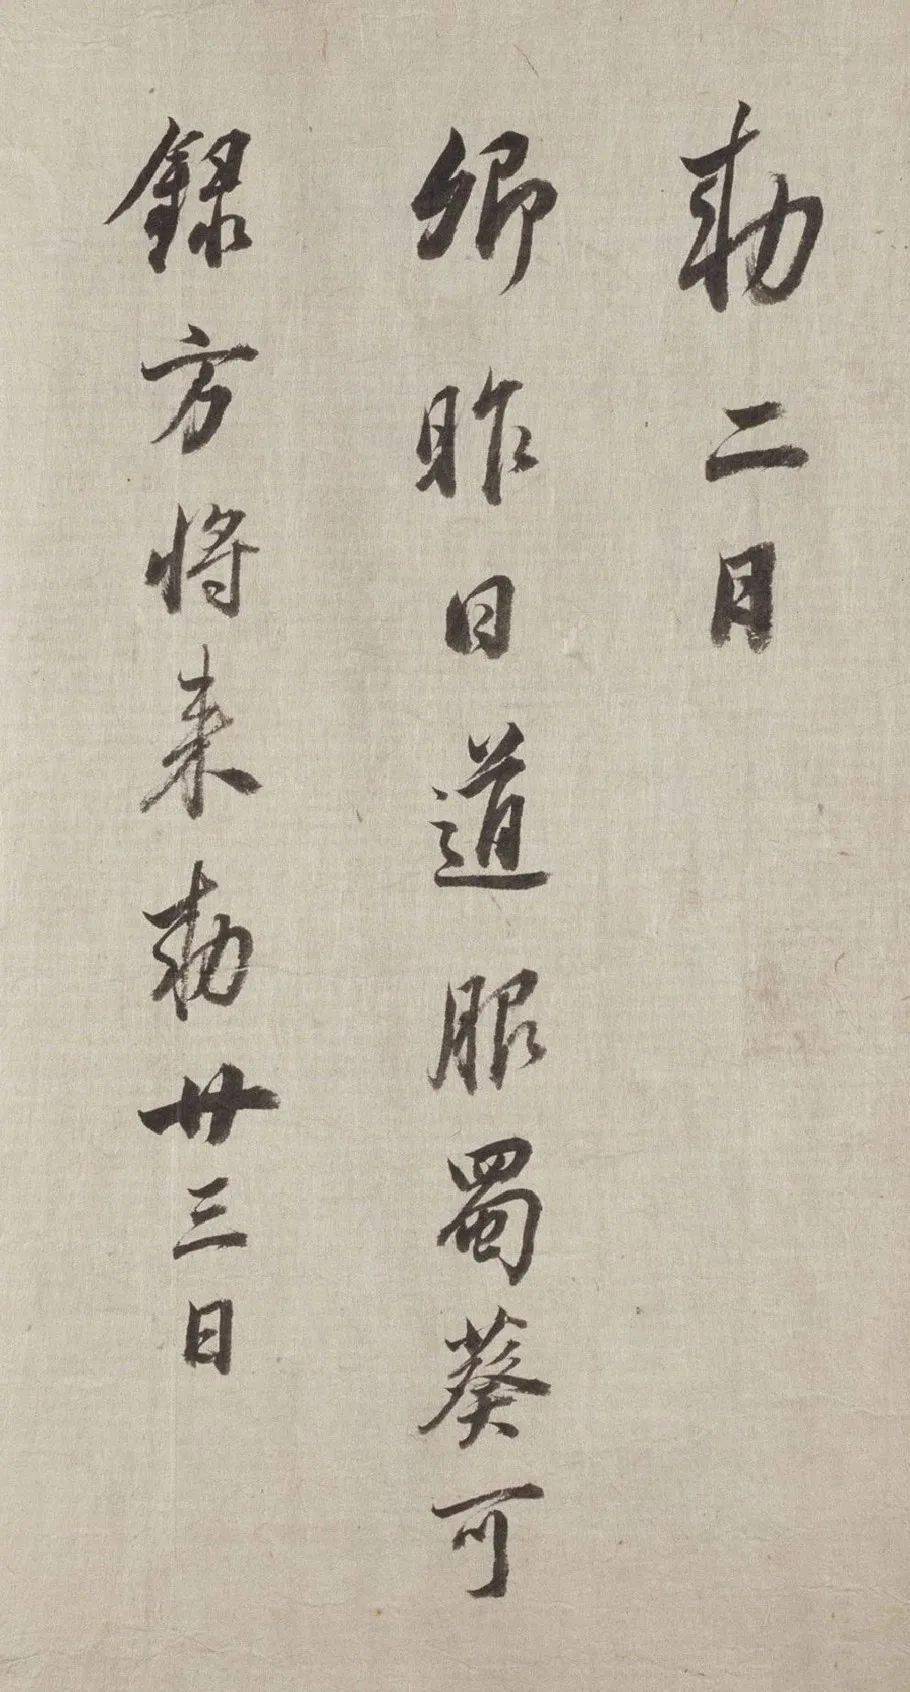 勅二月
卿昨日道服蜀葵可
録方将来勅廿三日